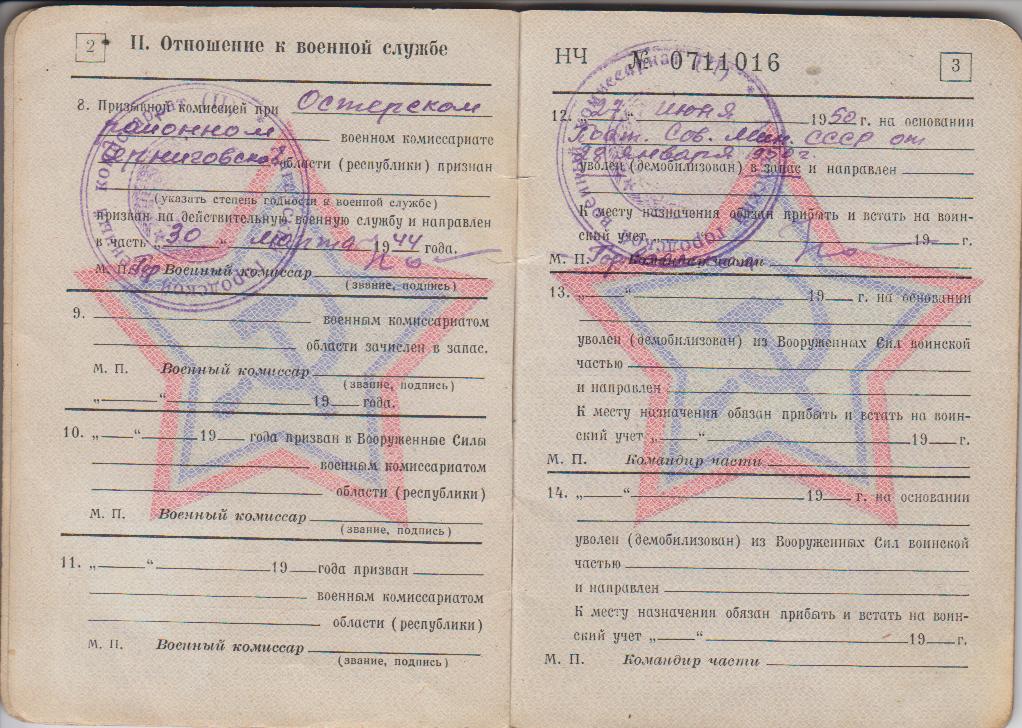 2
II. Отношение к военной службе
8. Призывной комиссией при Остерском
районном военном комиссариате
Черниговской области (республики) признан
(указать степень годности к военной службе)
призван на действительную военную службу и направлен
в часть „30“ марта 1944 года.
М. П. Гор Военный комиссар
(звание, подпись)
9.
военным комиссариатом
области зачислен в запас.
М. П. Военный комиссар
(звание, подпись)
„ “ 19 года.
10. „ “ 19 года призван в Вооруженные Силы
военным комиссариатом
области (республики)
М. П. Военный комиссар
(звание, подпись)
11. „ “ 19 года призван
военным комиссариатом
области (республики)
М. П. Военный комиссар
(звание, подпись)
НЧ № 0711016
3
12. „27“ июня 1950 г. на основании
Пост. Сов. Мин. СССР от
января г.
уволен (демобилизован) в запас и направлен
К месту назначения обязан прибыть и встать на воин-
ский учет 19 г.
М. П. Гор Командир части
13. „ “ 19 г. на основании
уволен (демобилизован) из Вооруженных Сил воинской
частью
и направлен
К месту назначения обязан прибыть и встать на воин-
ский учет „ “ 19 г.
М. П. Командир части
14. „ “ 19 г. на основании
уволен (демобилизован) из Вооруженных Сил воинской
частью
и направлен
К месту назначения обязан прибыть и встать на воин-
ский учет „ “ 19 г.
М. П. Командир части